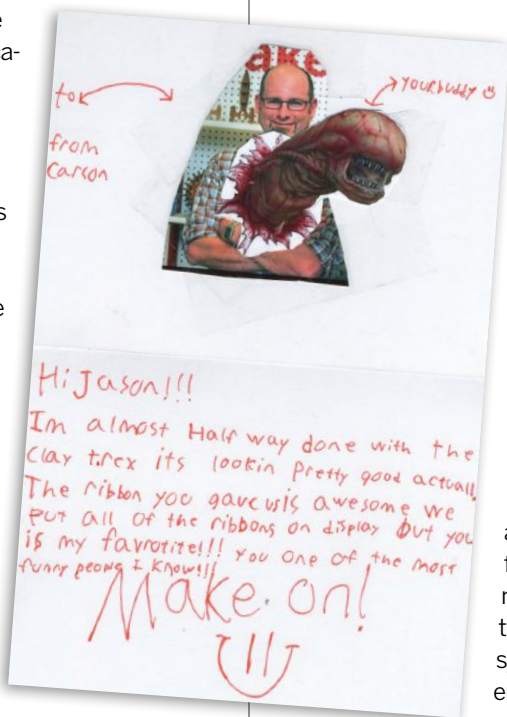 e
ca-
s
e
ake
to
from
carson
your buddy
Hi Jason!!!
Im almost Half way done with the
clay t.rex its lookin Pretty good actuall
The ribbon you gave us is awesome we
put all of the ribbons on display but you
is my favrotite!!! you one of the most
funny I know!!!
Make. on!
a
t
sy
e